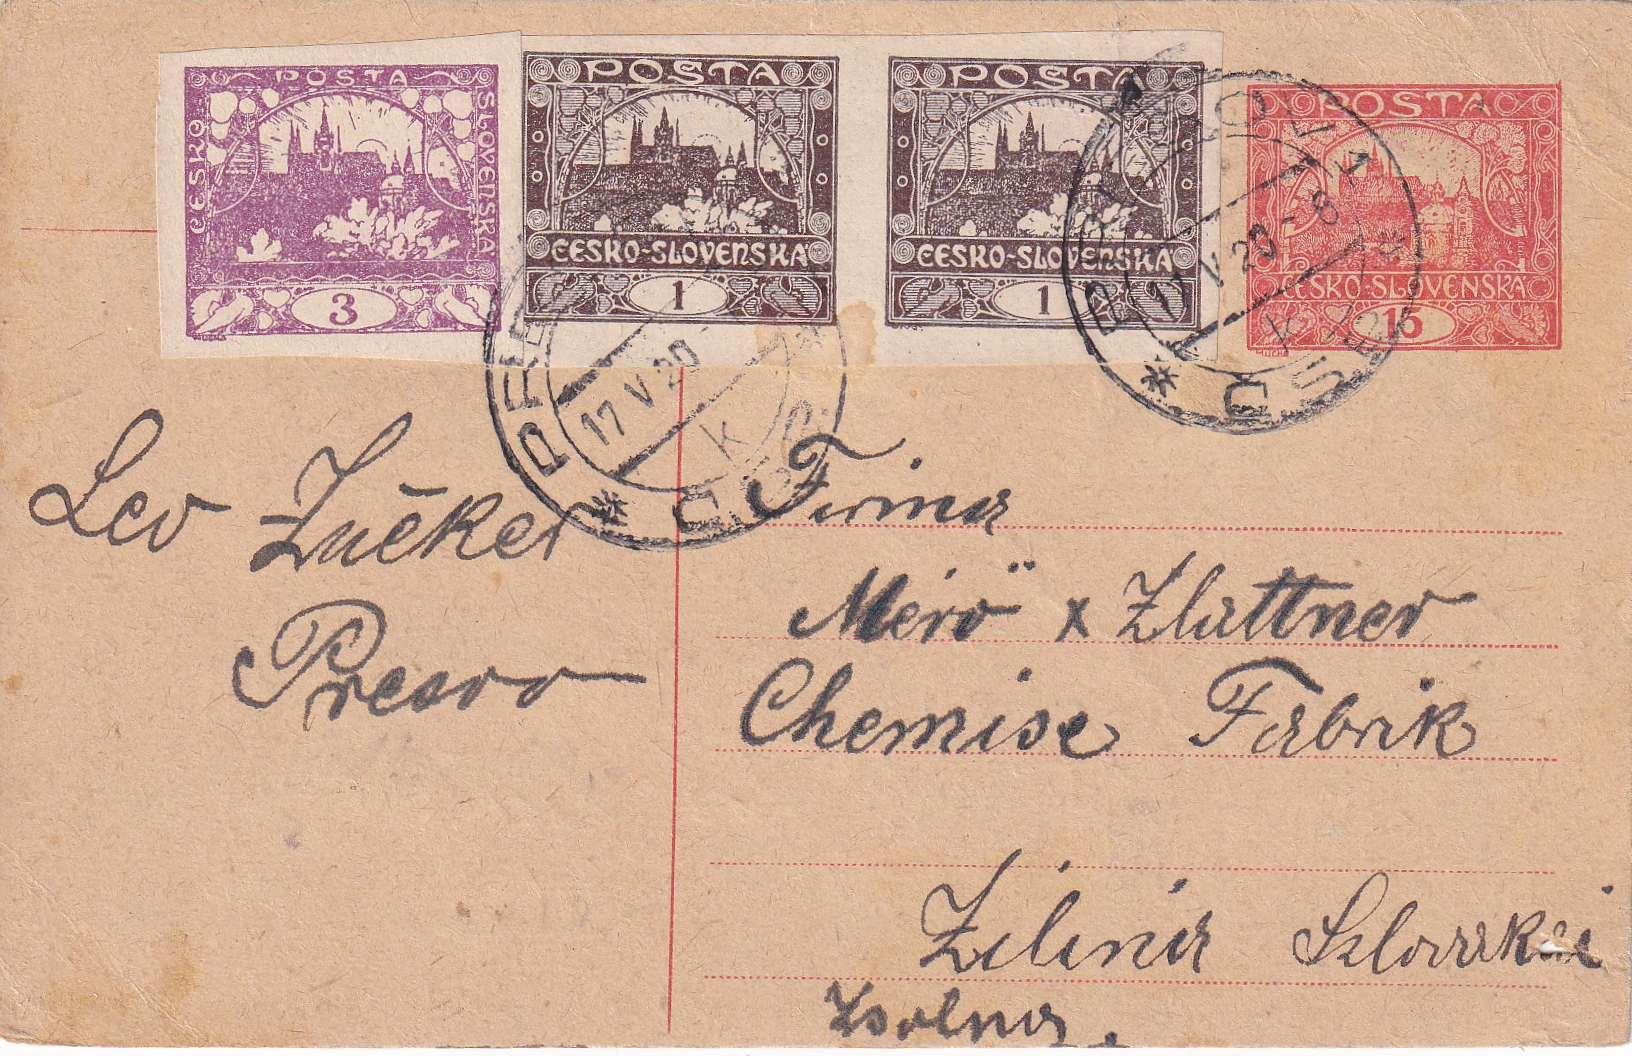 POSTA
ČESKO
SLOVENSKÁ
3
MUCHA
POSTA
ČESKO-SLOVENSKÁ
1
POSTA
ČESKO-SLOVENSKÁ
1
POSTA
ČESKO-SLOVENSKÁ
15
MUCHA
17 V 20
k
17 V 20 - 8
k
Leo Zucker
Presov
Firma
Merö x Zlattner
Chemise Fabrik
Zilina Szlovakei
Zsolna.